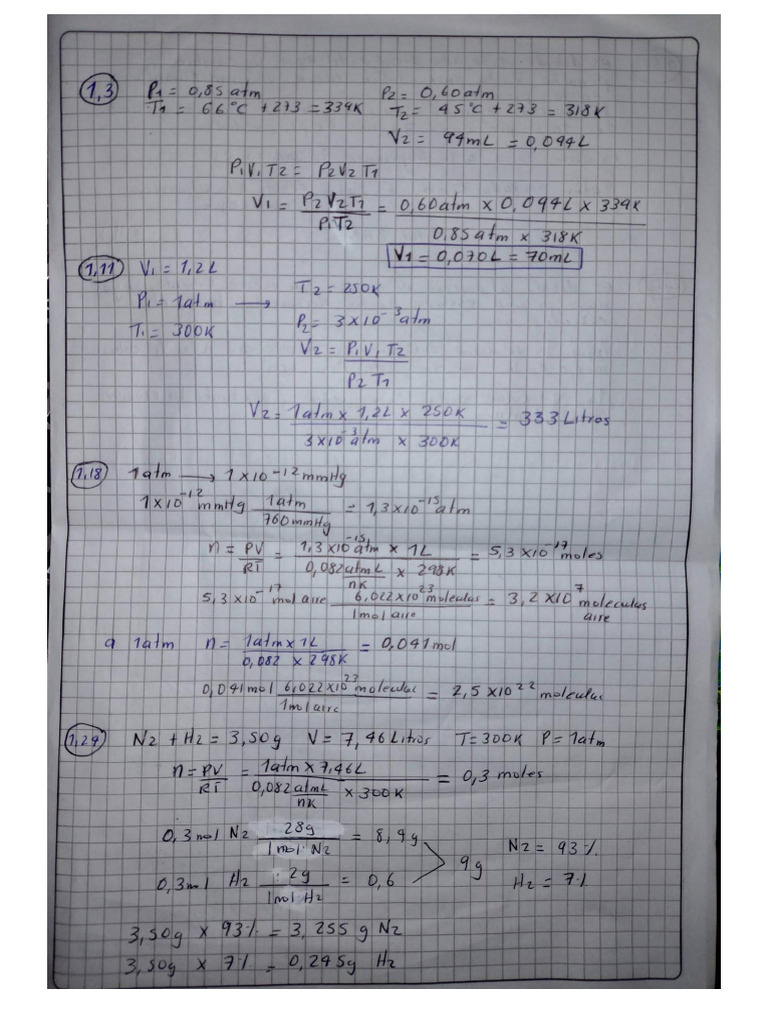 1,3 P1 = 0,85 atm P2 = 0,60 atm
T1 = 66°C + 273 = 339K T2 = 45°C + 273 = 318K
V2 = 94mL = 0,094L
P1V1T2 = P2V2T1
V1 = P2V2T1 / P1T2 = 0,60 atm x 0,094L x 339K / 0,85 atm x 318K
V1 = 0,070L = 70mL
1,11 V1 = 1,2L
P1 = 1atm → T2 = 250K
T1 = 300K P2 = 3x10⁻³atm
V2 = P1V1T2 / P2T1
V2 = 1atm x 1,2L x 250K / 3x10⁻³atm x 300K = 333 Litros
1,18 1atm → 1x10⁻¹² mmHg
1x10⁻¹² mmHg 1atm / 760mmHg = 1,3x10⁻¹⁵ atm
n = PV / RT = 1,3x10⁻¹⁵ atm x 1L / 0,082 atmL/nK x 298K = 5,3x10⁻¹⁷ moles
5,3x10⁻¹⁷ mol aire 6,022x10²³ moleculas / 1mol aire = 3,2x10⁷ moleculas aire
a 1atm n = 1atm x 1L / 0,082 x 298K = 0,041 mol
0,041mol 6,022x10²³ molecular / 1mol aire = 2,5x10²² moleculas
1,29 N2 + H2 = 3,50g V = 7,46 Litros T = 300K P = 1atm
n = PV / RT = 1atm x 7,46L / 0,082 atmL/nK x 300K = 0,3 moles
0,3mol N2 28g / 1mol N2 = 8,4g
9g N2 = 93%
0,3mol H2 2g / 1mol H2 = 0,6 H2 = 7%
3,50g x 93% = 3,255 g N2
3,50g x 7% = 0,245g H2